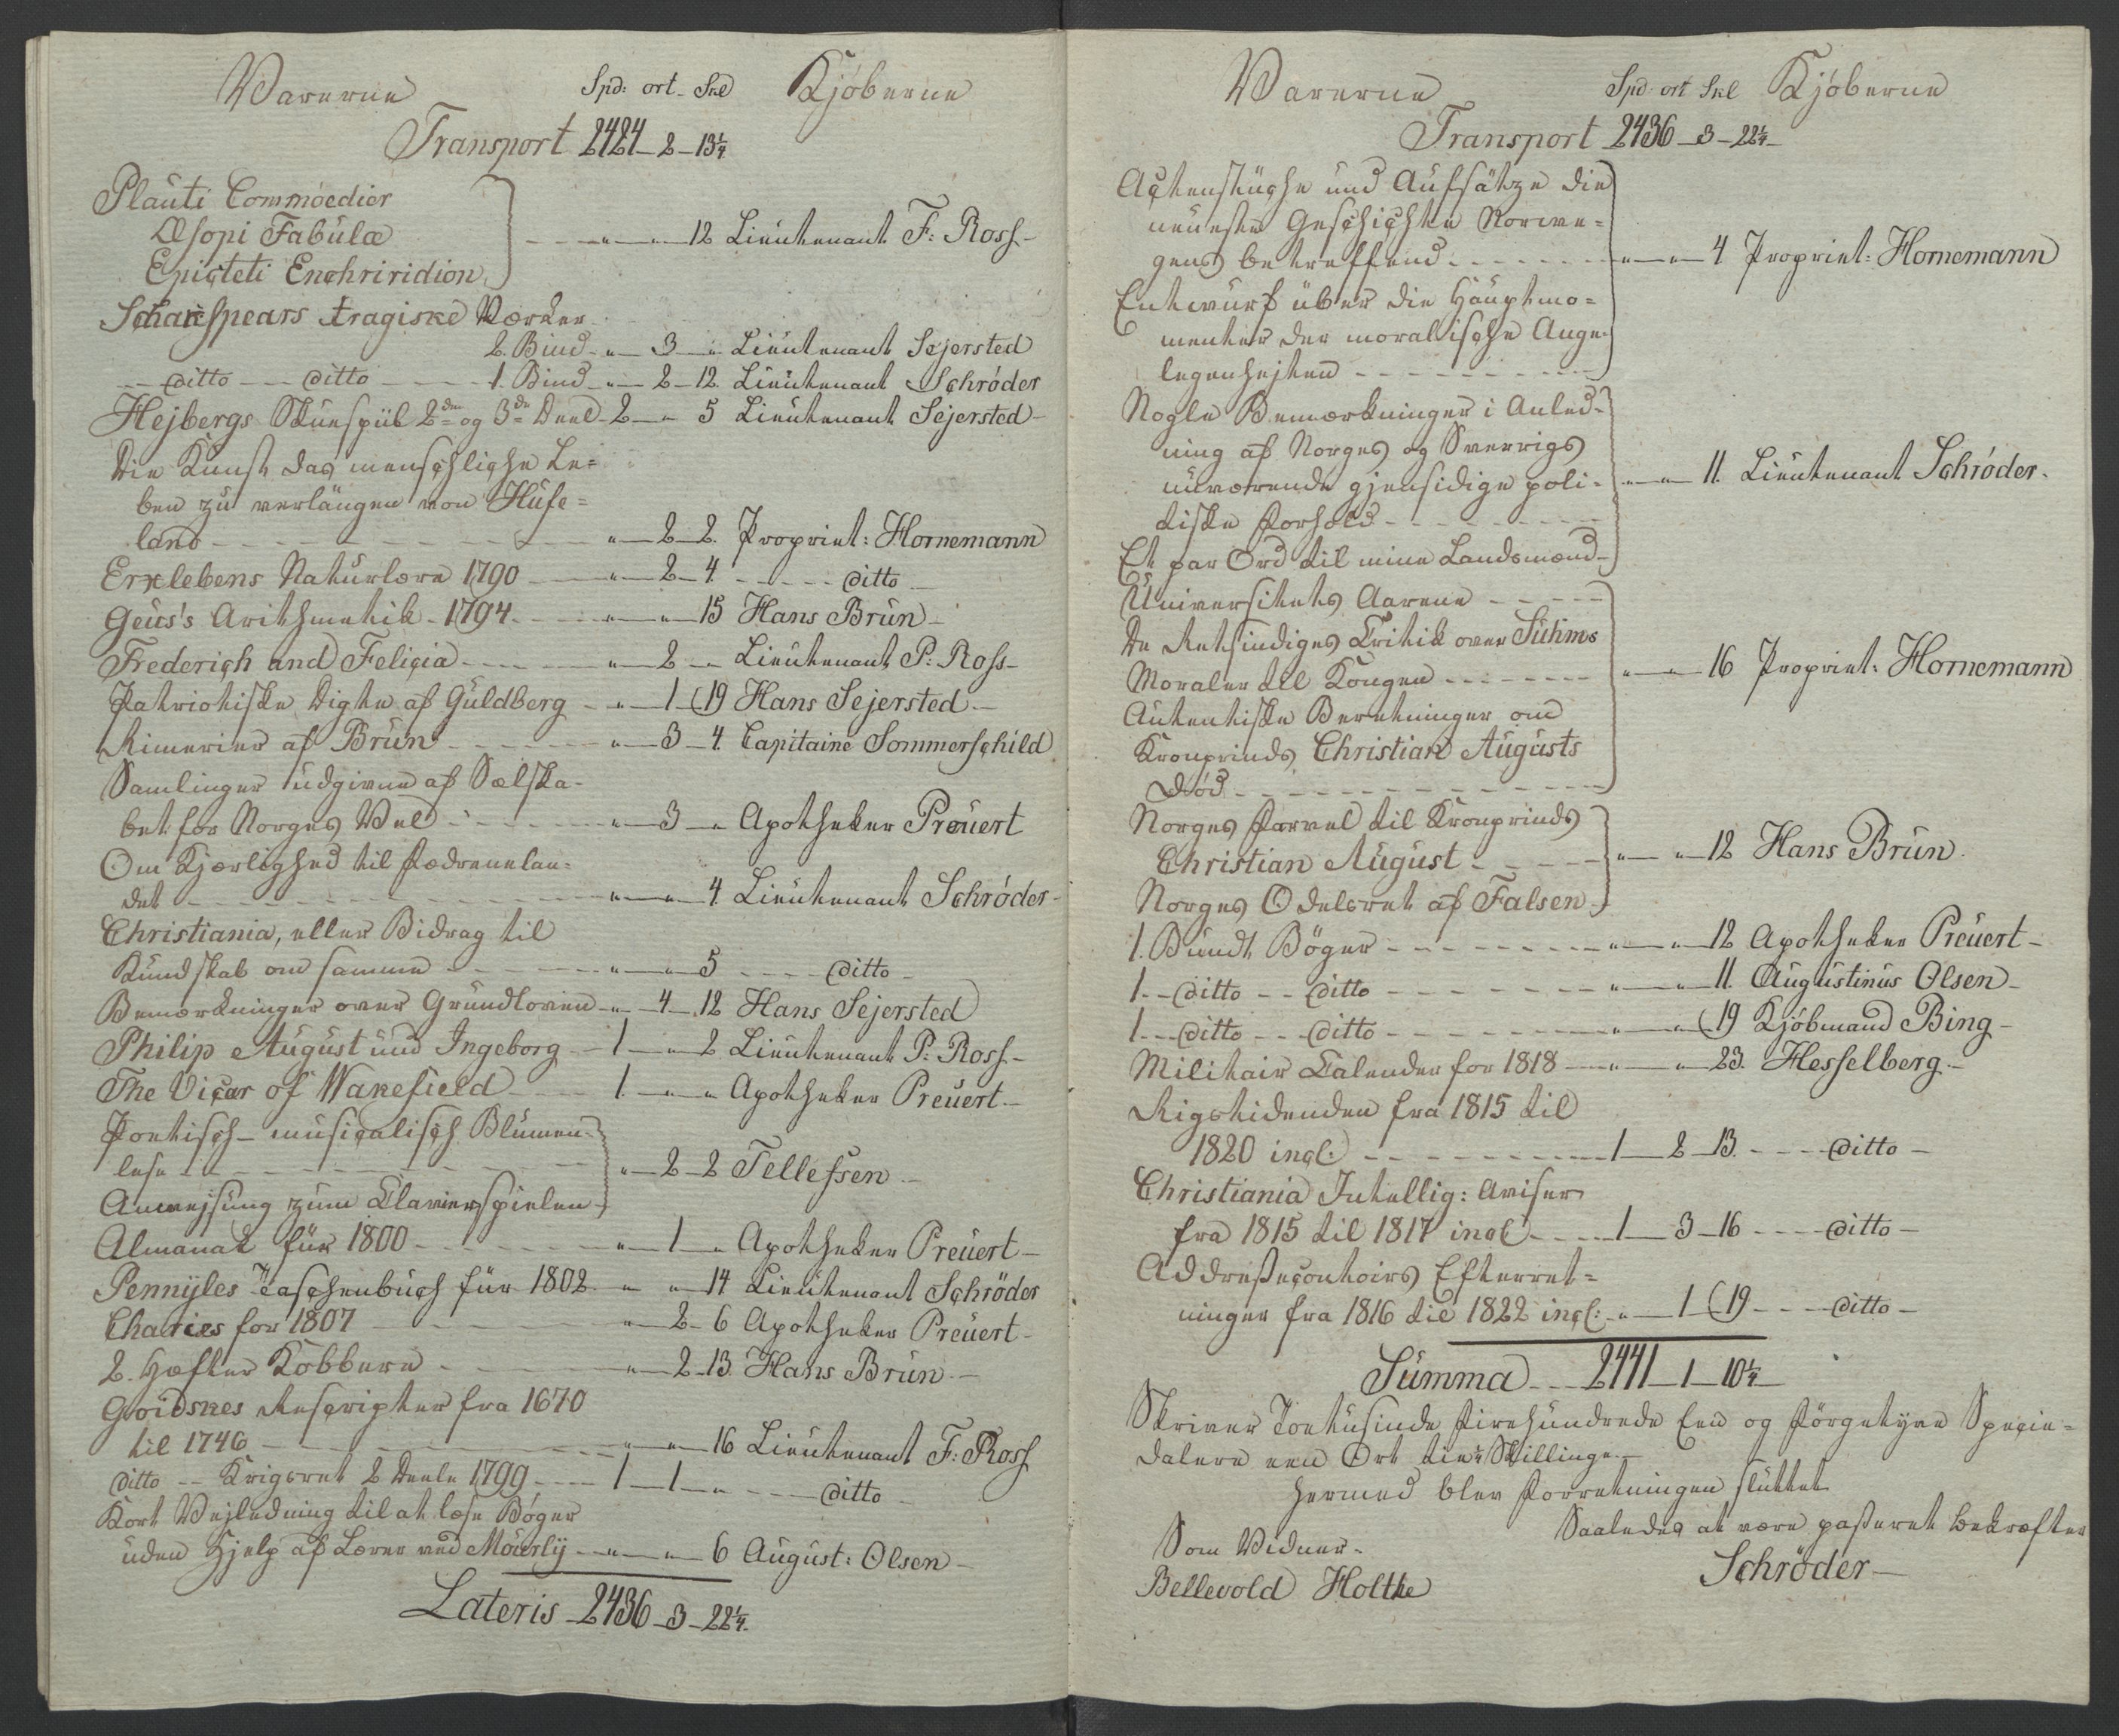 Varerne Spd: ort- Skl Kjøberne
Transport 2424-2-13¼
Plauti Commoedier
Æsopi Fabulæ - - - " - " - 12 Lieutenant F: Ross-
Epicteti Enchriridion
Schakspears tragiske Værker
2. Bind - " - 3 - " Lieutenant Sejersted
- - ditto - - ditto - - - 1. Bind - " - 2 - 12. Lieutenant Schrøder
Hejbergs Skuespiil 2den og 3de Deel - 2 - " 5 Lieutenant Sejersted-
Die Kunst das menschliche Le=
ben zu verlängen von Hufe=
land - - - " - 2 - 2. Propriet: Hornemann
Erxlebens Naturlære 1790 - " - 2 - 4. - - - ditto -
Geus's Arithmetik - 1794. - - " - " - 15 Hans Brun -
Frederich and Felicia - - - " - 2 - " Lieutenant P: Ross-
Patriotiske Digte af Guldberg - " - 1 - (19 Hans Sejersted -
Rimerier af Brun - - - " - 3 - 4. Capitaine Sommerschild
Samlinger udgivne af Selska-
bet for Norges Vel - - - " - 3 - " Apotheker Preuert
Om Kjærlighed til Fædrenelan-
det - - - " - " - 4. Lieutenant Schrøder-
Christiania, eller Bidrag til
Kundskab om samme - - - " - " - 5 - - - ditto -
Bemærkninger over Grundloven - " - 4 - 12 Hans Sejersted
Philip August und Ingeborg - 1 - " - 2 Lieutenant P: Ross-
The Vicar of Wakefield - - - 1. - " - " Apotheker Preuert -
Poetisch-musicalisch Blumen-
lese - - - " - 2 - 2 Tellefsen -
Anwejsung zum Clavierspielen
Almanak für 1800 - - - " - 1 - " Apotheker Preuert -
Pennyles Taschenbuch für 1802 - " - " - 14 Lieutenant Schrøder
Charies for 1807 - - - " - 2 - 6 Apotheker Preuert -
2. Hefter Kobbere - - - " - 2 - 13. Hans Brun -
Goidskes Rescripter fra 1670
til 1746 - - - " - " - 16 Lieutenant F: Ross
ditto - - Krigsret 2 Deele 1799 - - 1 - 1 - " - - - ditto -
Kort Vejledning til at læse Bøger
uden Hjelp af Lærer ved Mourly - " - " - 6 August: Olsen -
Lateris - 2436 - 3 - 22¼.
Varerne Spd: ort Skl Kjøberne
Transport 2436 - 3 - 22¼ -
Actenstücke und Aufsätze die
neueste Geschichte Norwe=
gens betreffend - - - " - " - 4 Propriet: Hornemann
Entwurf über die Hauptmo=
menter der moralische Ange-
legenhejten - - -
Nogle Bemærkninger i Anled-
ning af Norges og Sverrigs
nuværende gjensidige poli- " - " - 11. Lieutenant Schrøder.
tiske Forhold - - -
Et par Ord til mine Landsmænd -
Universitets Aarene - - -
De Retsindiges Critik over Suhms
Moraler til Kongen - - - " - " - 16 Propriet: Hornemann
Autentiske Beretninger om
Kronprinds Christian Augusts
Død - - -
Norges Farvel til Kronprinds
Christian August - - - " - " - 12 Hans Brun
Norges Odelsret af Falsen
1. Bundt Bøger - - - " - " - 12 Apotheker Preuert -
1 - - ditto - - ditto - - - " - " - 11. Augustinus Olsen -
1 - - ditto - - ditto - - - " - " - (19 Kjøbmand Bing -
Militair Calender for 1818 - " - " - 23. Hesselberg -
Rigstidenden fra 1815 til
1820 incl: - - - 1 - 2 - 13. - - - ditto -
Christiania Intellig: Aviser
fra 1815 til 1817 incl - - - 1 - 3 - 16 - - - ditto -
Addressecontoirs Efterret=
ninger fra 1816 til 1822 incl: - " - 1 (19 - - - ditto -
Summa - - 2441 - 1 - 10¼ -
Skriver Toetusinde Firehundrede Een og Førgetyve Specie-
dalere een Ort tie ¼ Skillinge. -
hermed blev Forretningen sluttet
Saaledes at være passeret bekræfter
Som Vidner -
Schrøder -
Bellevold Holthe